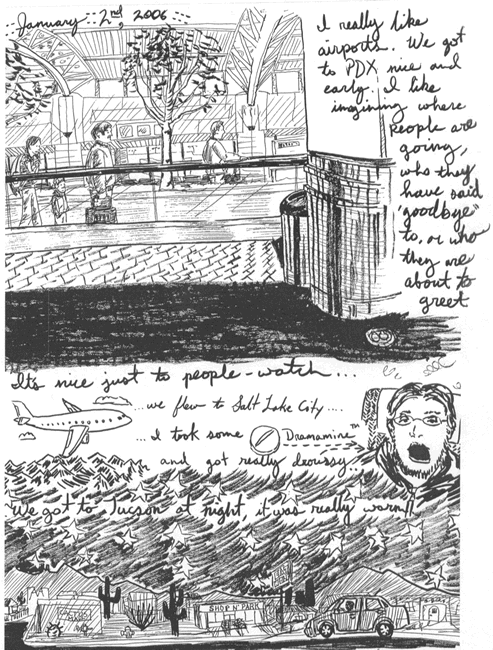 January 2nd, 2006
I really like
airports. We got
to PDX nice and
early. I like
imagining where
people are
going,
who they
have said
"goodbye"
to, or who
they are
about to
greet
It's nice just to people-watch...
...we flew to Salt Lake City....
...I took some Dramamine™
and got really drowssy...
We got to Tucson at night, it was really warm!!
SHOE N PARK